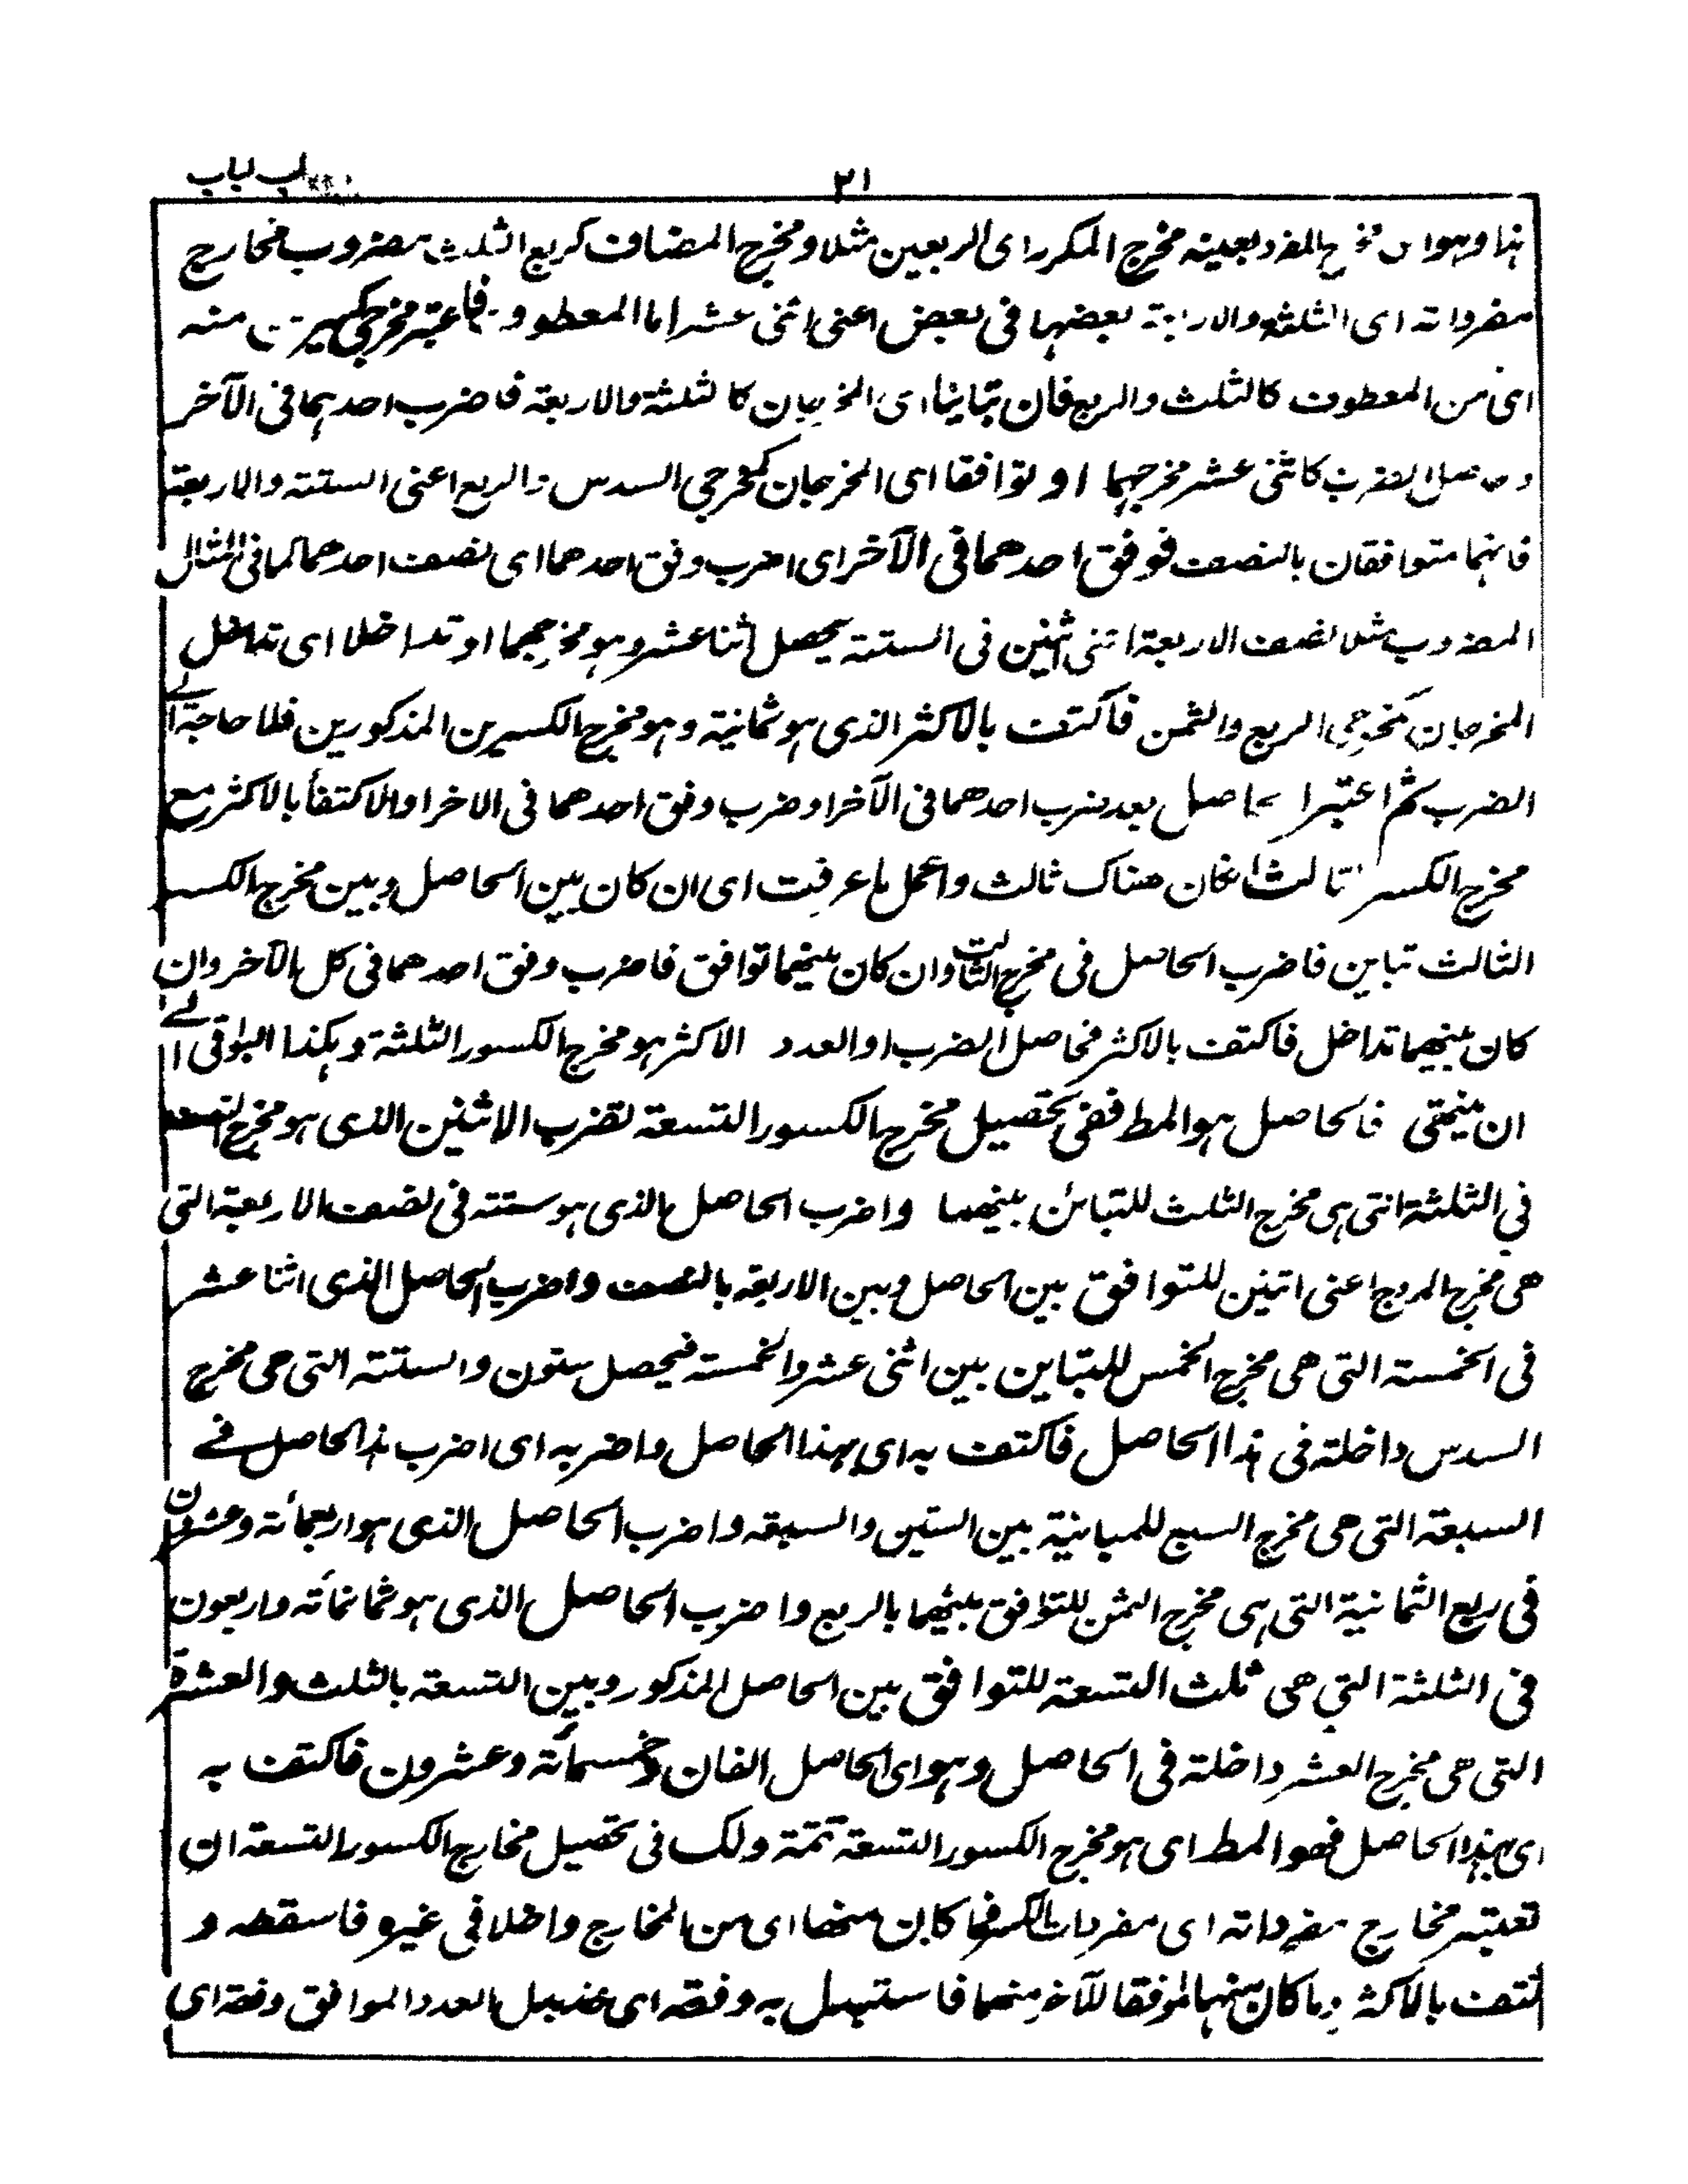 لب لباب
٢١
هذا وهو اى مخرج المفرد بعينه مخرج المكرر اى الربعين مثلا ومخرج المضاف كربع الثلث مضروب مخارج
مفرداته اى الثلثة والاربعة بعضها فى بعض اعنى اثنى عشر اما المعطوف فاعتبر مخرجى كسرين منه
اى من المعطوف كالثلث والربع فان تباينا اى المخرجان كالثلثة والاربعة فاضرب احدهما فى الآخر
وحاصل الضرب كاثنى عشر مخرجهما او توافقا اى المخرجان كمخرجى السدس والربع اعنى الستة والاربعة
فانهما متوافقان بالنصف فوفق احدهما فى الآخر اى اضرب وفق احدهما اى نصف احدهما كما فى المثال
المضروب مثلا نصف الاربعة اثنى اثنين فى الستة يحصل اثنا عشر وهو مخرجهما او تداخلا اى تداخل
المخرجان كمخرجى الربع والثمن فاكتف بالاكثر الذى هو ثمانية وهو مخرج الكسرين المذكورين فلا حاجة الے
الضرب ثم اعتبر الحاصل بعد ضرب احدهما فى الآخر او ضرب وفق احدهما فى الاخر او الاكتفأ بالاكثر مع
مخرج الكسر الثالث ان كان هناك ثالث واعمل ما عرفت اى ان كان بين الحاصل وبين مخرج الكسر
الثالث تباين فاضرب الحاصل فى مخرج الثالث وان كان بينهما توافق فاضرب وفق احدهما فى كل الآخر وان
كان بينهما تداخل فاكتف بالاكثر فحاصل الضرب او العدد الاكثر هو مخرج الكسور الثلثة وهكذا البواقى الے
ان ينتهى فالحاصل هو المط ففى تحصيل مخرج الكسور التسعة تضرب الاثنين الذى هو مخرج النصف
فى الثلثة التى هى مخرج الثلث للتبائن بينهما واضرب الحاصل الذى هو ستة فى نصف الاربعة التى
هى مخرج الربع اعنى اثنين للتوافق بين الحاصل وبين الاربعة بالنصف واضرب الحاصل الذى اثنا عشر
فى الخمسة التى هى مخرج الخمس للتباين بين اثنى عشر والخمسة فيحصل ستون والستة التى هى مخرج
السدس داخلة فى هذا الحاصل فاكتف به اى بهذا الحاصل واضربه اى اضرب هذا الحاصل فے
السبعة التى هى مخرج السبع للمبانية بين الستين والسبعة واضرب الحاصل الذى هو اربعمائة وعشرون
فى ربع الثمانية التى هى مخرج الثمن للتوافق بينهما بالربع واضرب الحاصل الذى هو ثمانمائة واربعون
فى الثلثة التى هى ثلث التسعة للتوافق بين الحاصل المذكور وبين التسعة بالثلث والعشرة
التى هى مخرج العشر داخلة فى الحاصل وهو اى الحاصل الفان وخمسمائة وعشرون فاكتف به
اى بهذا الحاصل فهو المط اى هو مخرج الكسور التسعة تتمة ولك فى تحصيل مخارج الكسور التسعة ان
تعتبر مخارج مفرداته اى مفردات الكسر فما كان منها اى من المخارج داخلا فى غيره فاسقطه و
اكتف بالاكثر وما كان منها موافقا للآخر منهما فاستبدل به وفقه اى خذ بدل العدد الموافق وفقه اى